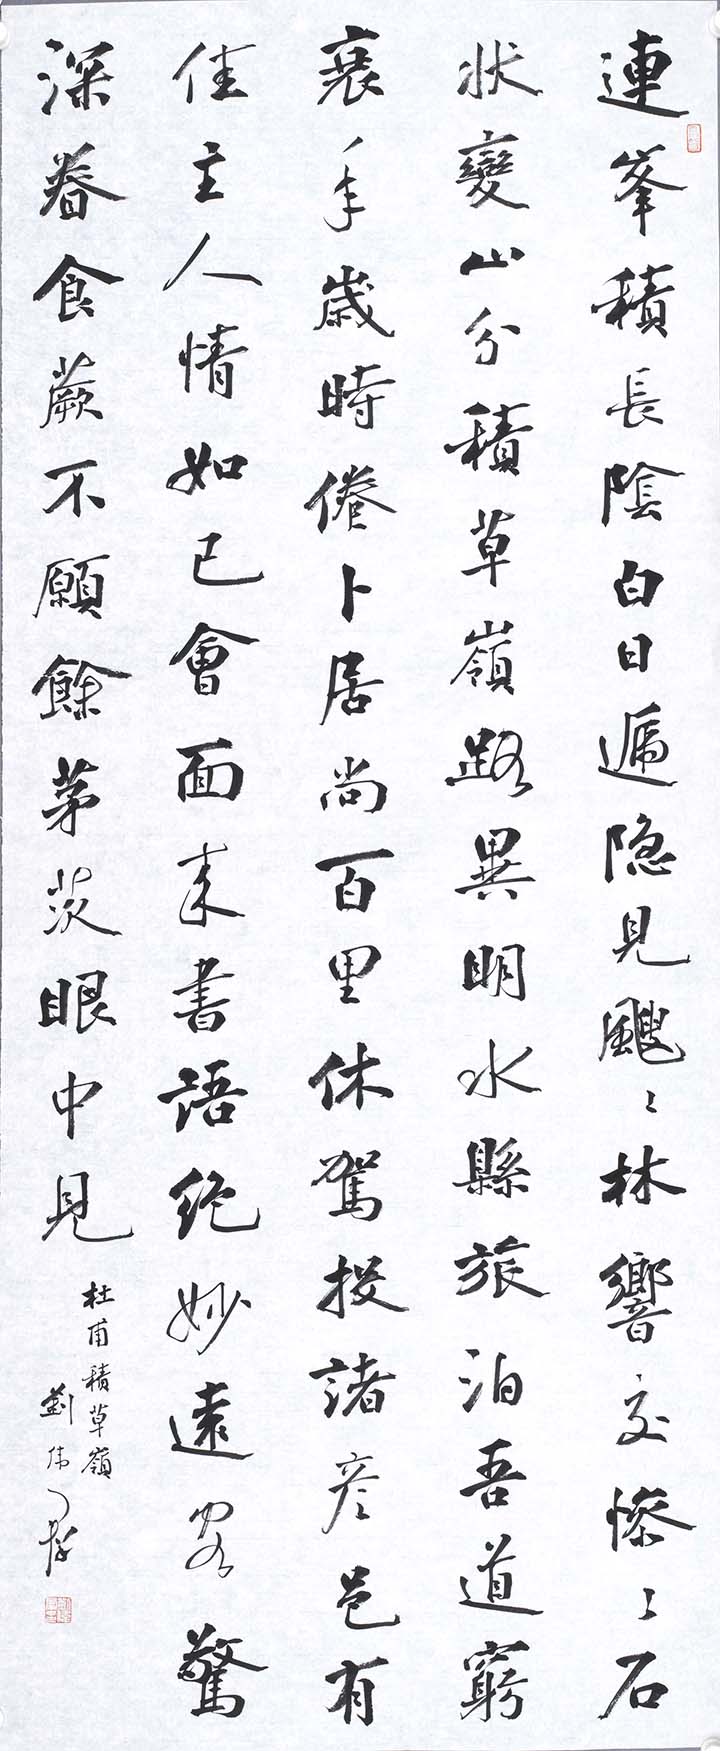 連峯積長陰白日遞隐見颼〻林響交慘〻石
狀變山分積草嶺路異明水縣旅泊吾道窮
衰年歲時倦卜居尚百里休駕投諸彦邑有
佳主人情如已會面来書語絶妙遠客驚
深眷食蕨不願餘茅茨眼中見
杜甫積草嶺
劉伟